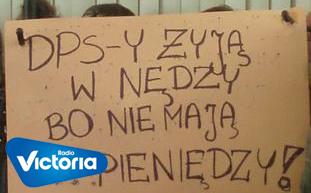 DPS-Y ŻYJĄ
W NĘDZY
BO NIE MAJĄ
PIENIĘDZY!
Radio
Victoria